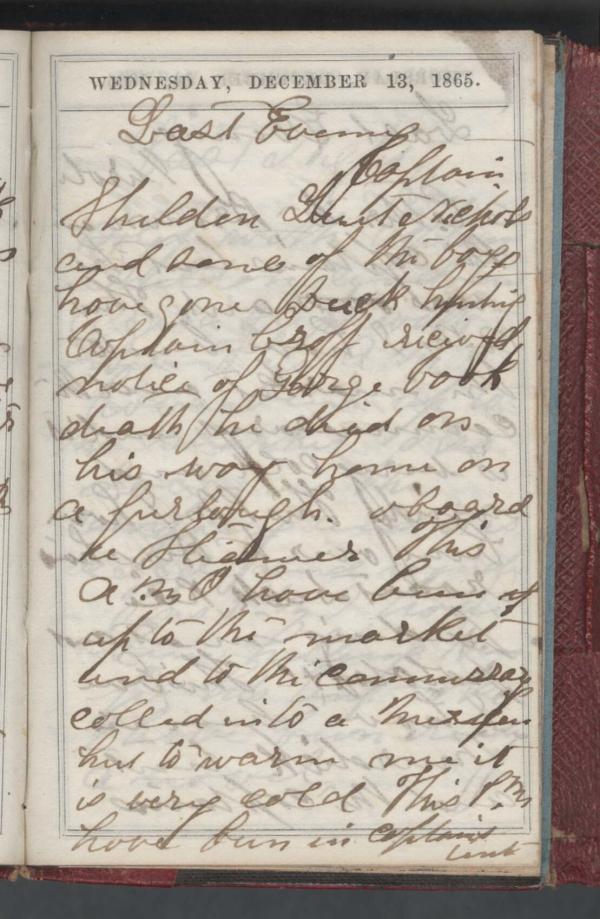 WEDNESDAY, DECEMBER 13, 1865.
Last Evening
Captain
Sheldon Lieut Nichols
and some of the boys
have gone Duck hunting
Captain Groff reicived
notice of George
death he died on
his way home on
a furlough. aboard
a Steamer This
A.M I have been
up to the market
and to the commissary
called into a
hut to warm me it
is very cold This P.M
have bin in Captains
tent